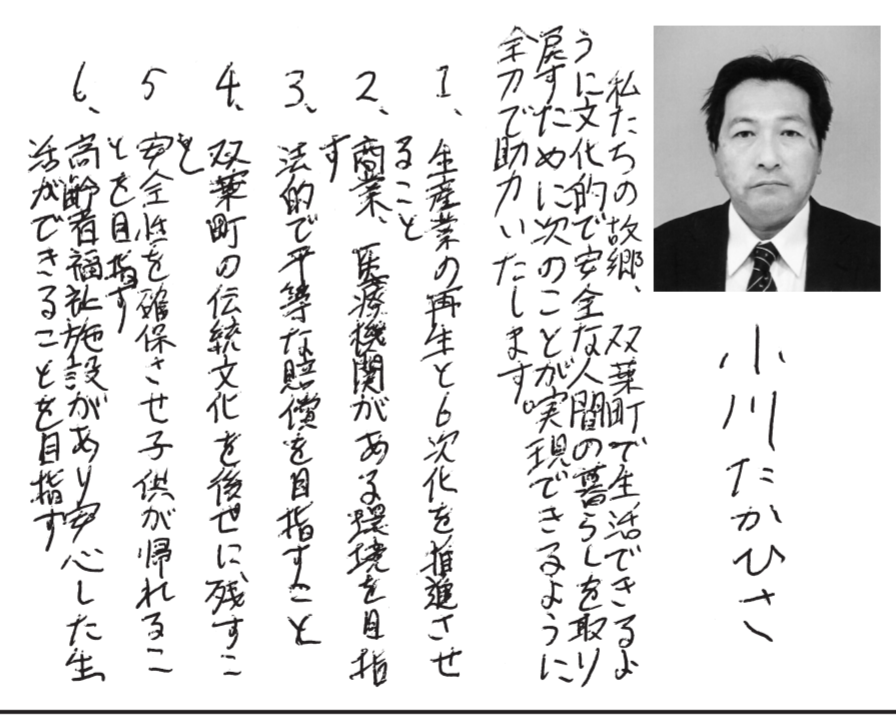 小川たかひさ
私たちの故郷、双葉町で生活できるよ
うに文化的で安全な人間の暮らしを取り
戻すために次のことが実現できるように
全力で助力いたします。
1、生産業の再生と6次化を推進させ
ること
2、商業、医療機関がある環境を目指
す
3、法的で平等な賠償を目指すこと
4、双葉町の伝統文化を後世に残すこ
と
5 安全性を確保させ子供が帰れるこ
とを目指す
6、高齢者福祉施設があり安心した生
活ができることを目指す